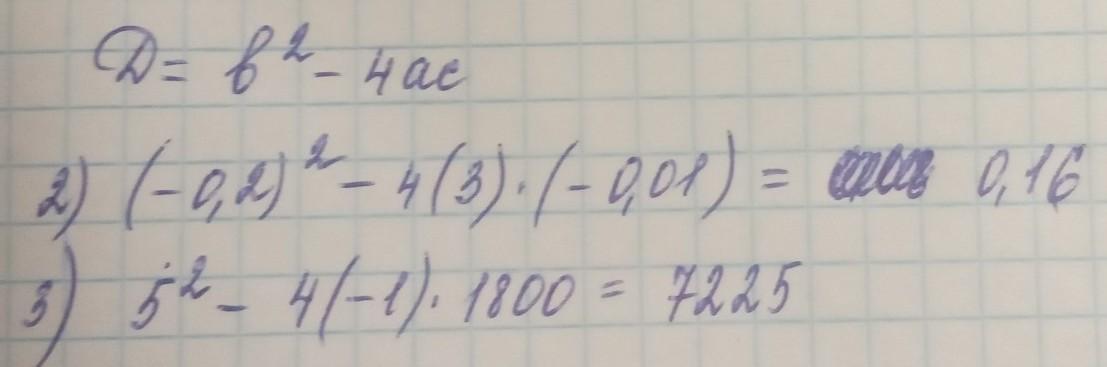 D = b² - 4ac
2) (-0,2)² - 4(3)·(-0,01) = 0,16
3) 5² - 4(-1)·1800 = 7225